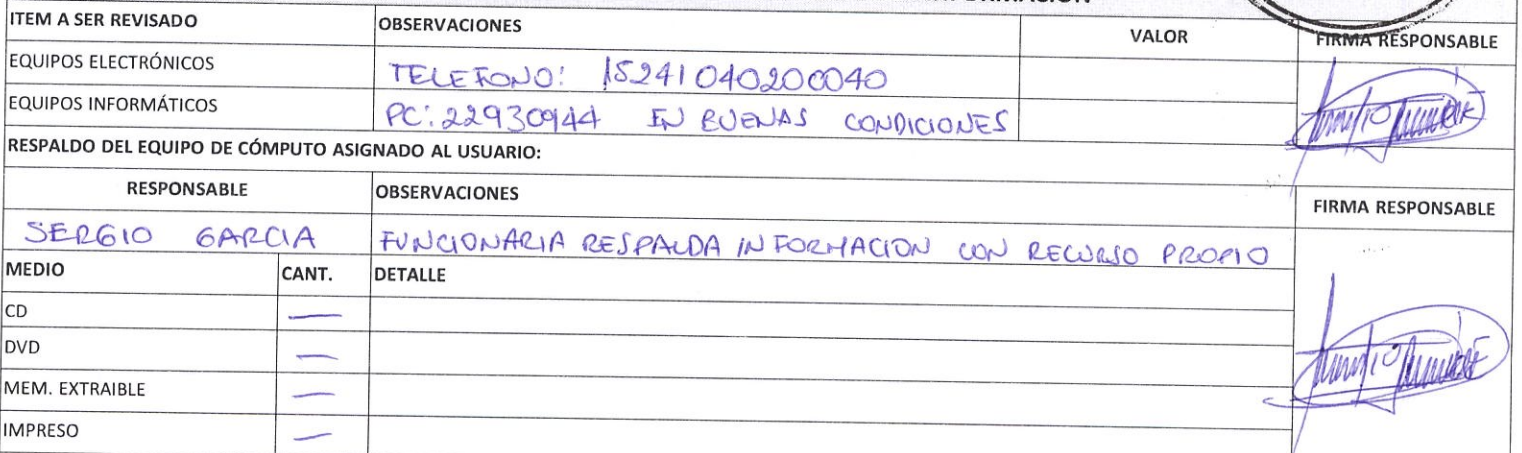 ITEM A SER REVISADO OBSERVACIONES VALOR FIRMA RESPONSABLE
EQUIPOS ELECTRÓNICOS TELEFONO: 15241040200040
EQUIPOS INFORMÁTICOS PC: 22930944 EN BUENAS CONDICIONES
RESPALDO DEL EQUIPO DE CÓMPUTO ASIGNADO AL USUARIO:
RESPONSABLE OBSERVACIONES FIRMA RESPONSABLE
SERGIO GARCIA FUNCIONARIA RESPALDA INFORMACION CON RECURSO PROPIO
MEDIO CANT. DETALLE
CD —
DVD —
MEM. EXTRAIBLE —
IMPRESO —